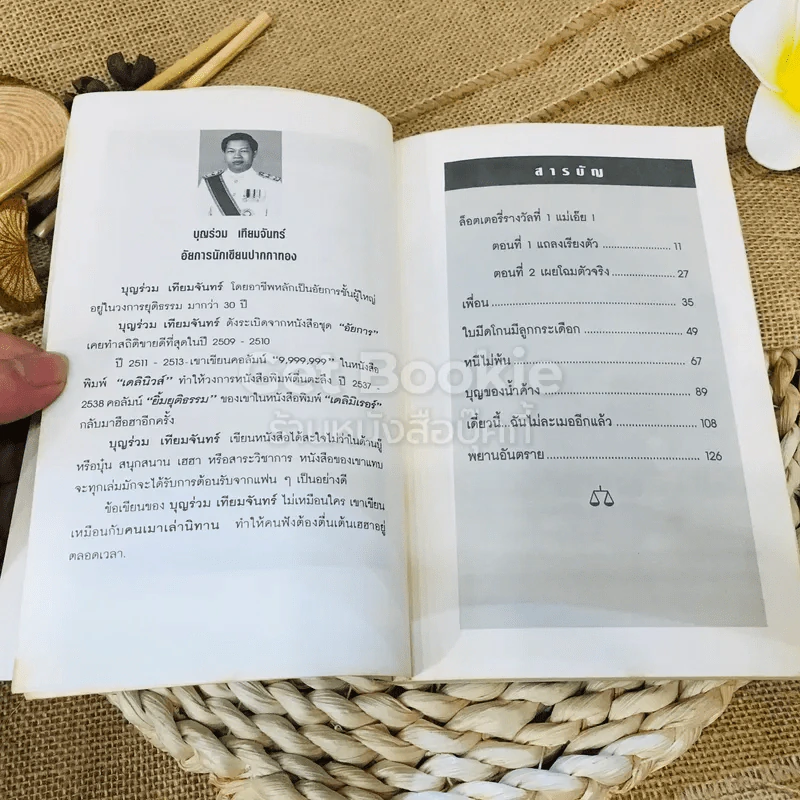 บุญร่วม เทียมจันทร์
อัยการนักเขียนปากกาทอง
บุญร่วม เทียมจันทร์ โดยอาชีพหลักเป็นอัยการชั้นผู้ใหญ่
อยู่ในวงการยุติธรรม มากว่า 30 ปี
บุญร่วม เทียมจันทร์ ดังระเบิดจากหนังสือชุด "อัยการ"
เคยทำสถิติขายดีที่สุดในปี 2509 - 2510
ปี 2511 - 2513 เขาเขียนคอลัมน์ "9,999,999" ในหนังสือ
พิมพ์ "เดลินิวส์" ทำให้วงการหนังสือพิมพ์ตื่นตะลึง ปี 2537 -
2538 คอลัมน์ "ยิ้มยุติธรรม" ของเขาในหนังสือพิมพ์ "เดลิมิเรอร์"
กลับมาฮือฮาอีกครั้ง
บุญร่วม เทียมจันทร์ เขียนหนังสือได้สะใจไม่ว่าในด้านบู๊
หรือบุ๋น สนุกสนาน เฮฮา หรือสาระวิชาการ หนังสือของเขาแทบ
จะทุกเล่มมักจะได้รับการต้อนรับจากแฟน ๆ เป็นอย่างดี
ข้อเขียนของ บุญร่วม เทียมจันทร์ ไม่เหมือนใคร เขาเขียน
เหมือนกับคนเมาเล่านิทาน ทำให้คนฟังต้องตื่นเต้นเฮฮาอยู่
ตลอดเวลา.
สารบัญ
ล็อตเตอรี่รางวัลที่ 1 แม่เอ๊ย !
ตอนที่ 1 แถลงเรียงตัว ........................ 11
ตอนที่ 2 เผยโฉมตัวจริง ........................ 27
เพื่อน ........................ 35
ใบมีดโกนมีลูกกระเดือก ........................ 49
หนีไม่พ้น ........................ 67
บุญของน้ำค้าง ........................ 89
เดี๋ยวนี้...ฉันไม่ละเมออีกแล้ว ........................ 108
พยานอันตราย ........................ 126
Get Bookie
ร้านหนังสือบุ๊คกี้